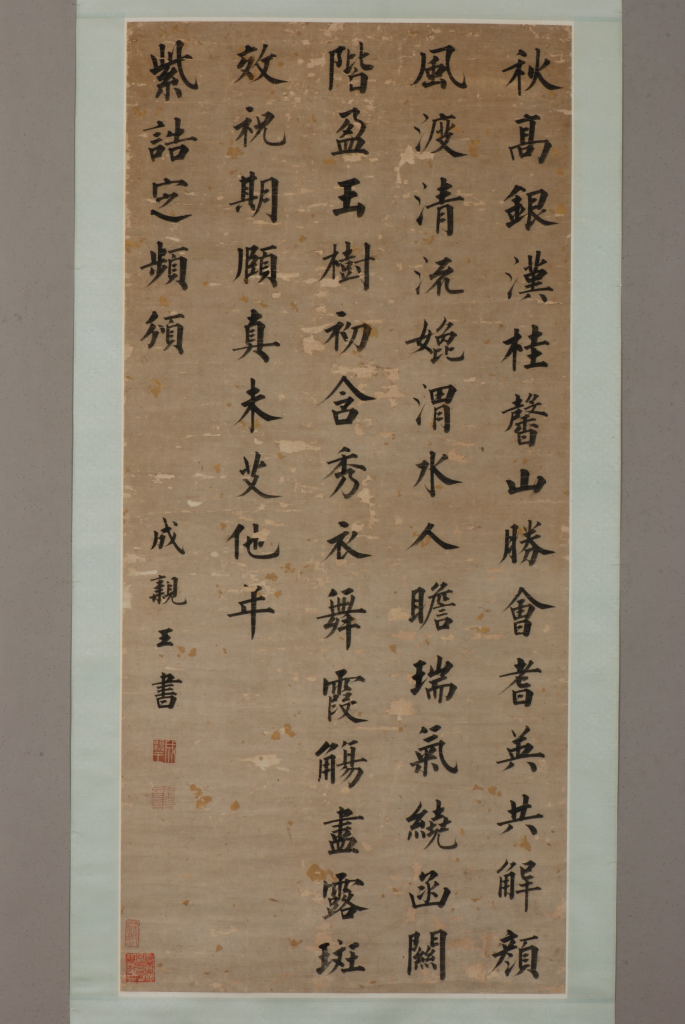 秋高銀漢桂馨山勝會耆英共解顏
風渡清流媲渭水人瞻瑞氣繞函關
階盈玉樹初含秀衣舞霞觴盡露斑
效祝期頤真未艾他年
紫誥定頻頒
成親王書